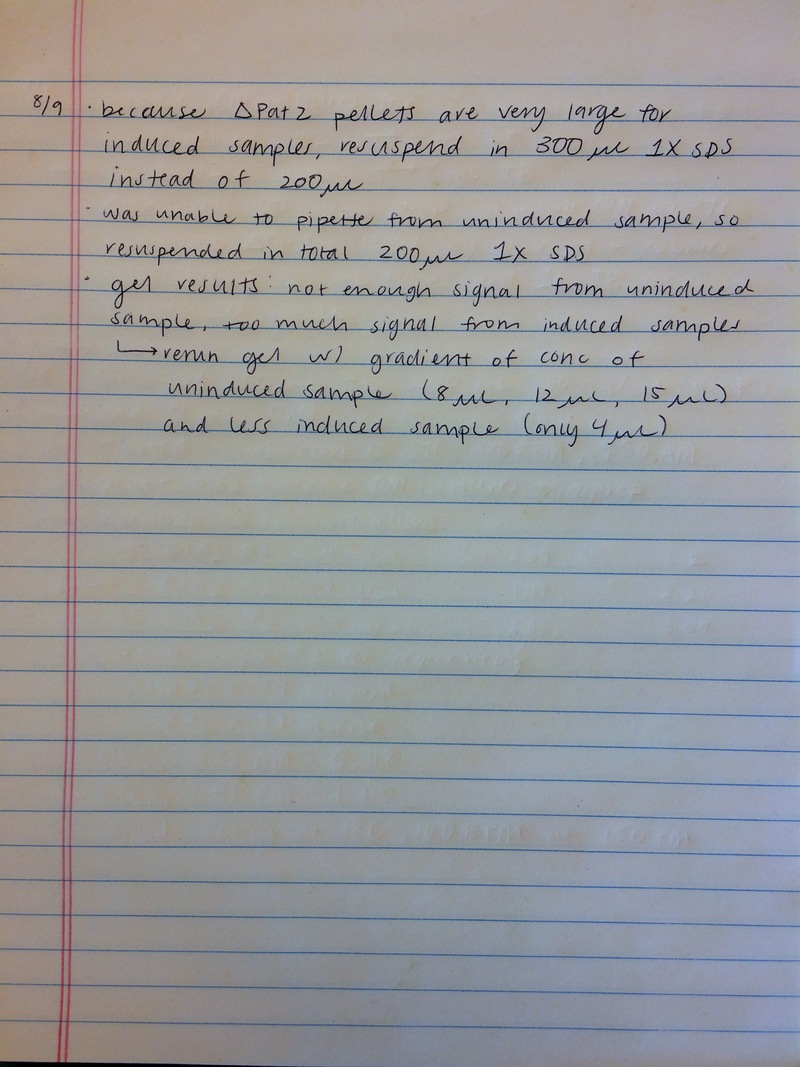 8/9 · because ΔPat2 pellets are very large for
induced samples, resuspend in 300 μL 1X SDS
instead of 200 μL
· was unable to pipette from uninduced sample, so
resuspended in total 200 μL 1X SDS
· gel results: not enough signal from uninduced
sample, too much signal from induced samples
↳ rerun gel w/ gradient of conc of
uninduced sample (8 μL, 12 μL, 15 μL)
and less induced sample (only 4 μL)